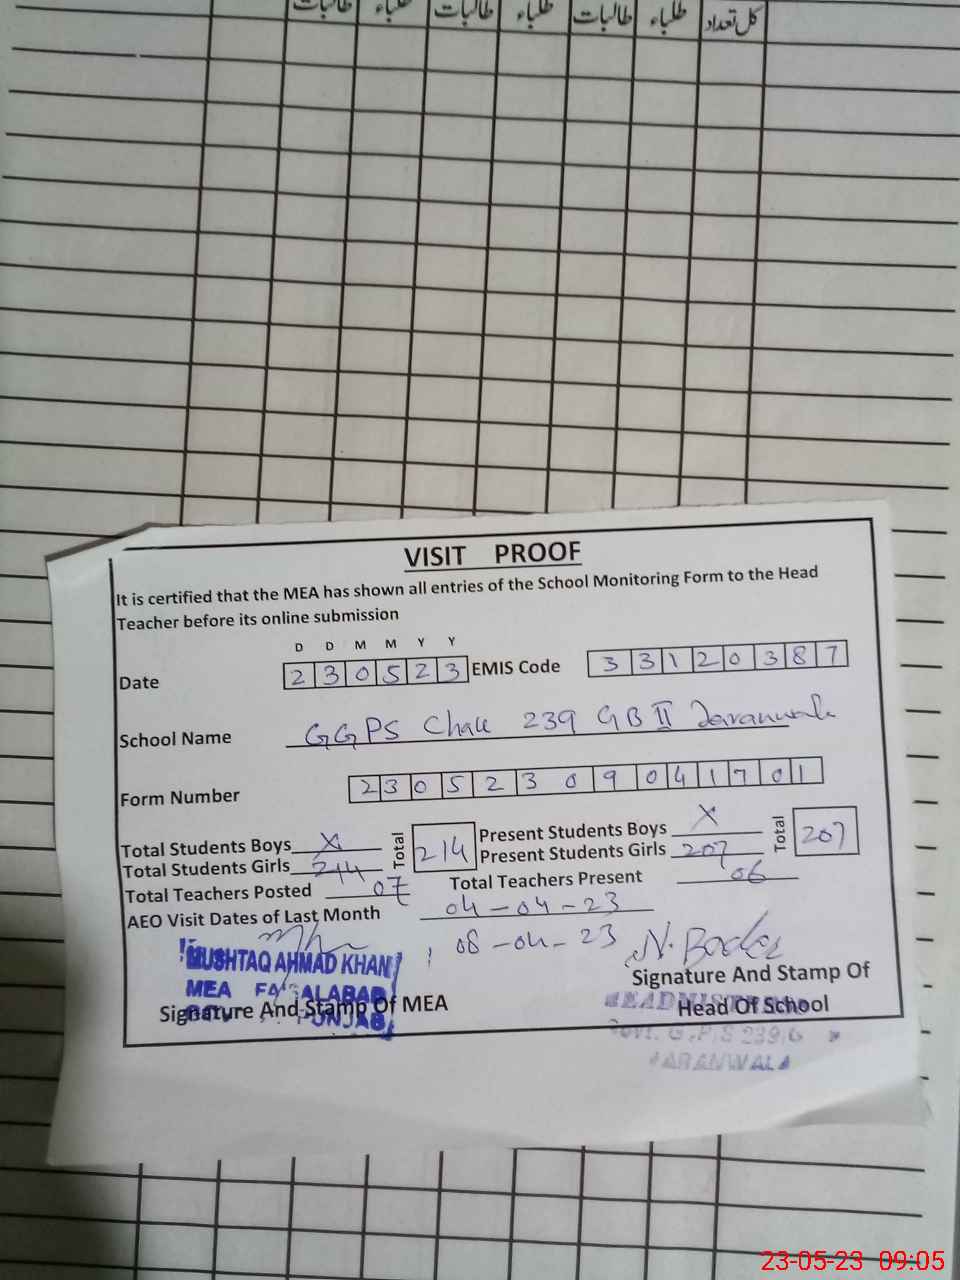 طالبات طلباء طالبات طلباء طالبات طلباء کل تعداد
VISIT PROOF
It is certified that the MEA has shown all entries of the School Monitoring Form to the Head
Teacher before its online submission
D D M M Y Y
Date 230523 EMIS Code 33120387
School Name GGPS Chak 239 GB II Jaranwala
Form Number 23052309041701
Total Students Boys X Total 214 Present Students Boys X Total 207
Total Students Girls 214 Present Students Girls 207
Total Teachers Posted 07 Total Teachers Present 06
AEO Visit Dates of Last Month 04-04-23
, 08-04-23
MUSHTAQ AHMAD KHAN
MEA FAISALABAD
PUNJAB
Signature And Stamp Of MEA
Signature And Stamp Of
Head Of School
HEADMISTRESS
Govt. G.P.S 239/G
JARANWALA
23-05-23 09:05